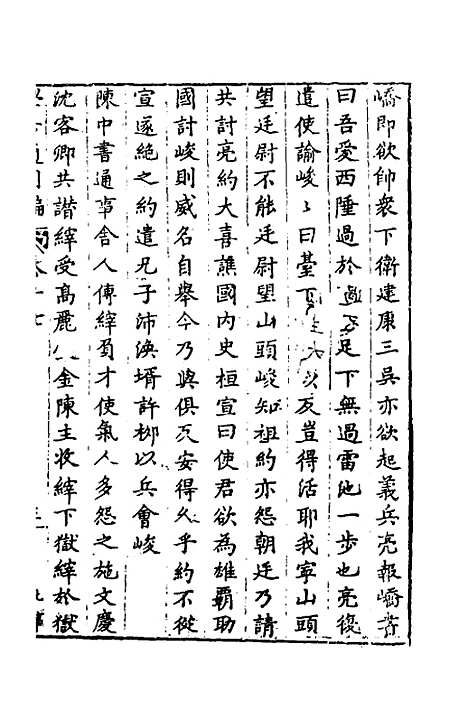 嶠即欲帥衆下衛建康三吳亦欲起義兵亮報嶠書
曰吾憂西陲過於足下無過雷池一步也亮復
遣使諭峻峻〻曰臺下反豈得活耶我寧山頭
望廷尉不能廷尉望山頭峻知祖約亦怨朝廷乃請
共討亮約大喜譙國內史桓宣曰使君欲為雄霸助
國討峻則威名自舉今乃與俱反安得久乎約不從
宣遂絕之約遣兄子沛渙壻許柳以兵會峻
陳中書通事舍人傅縡負才使氣人多怨之施文慶
沈客卿共譖縡受高麗金陳主收縡下獄縡於獄